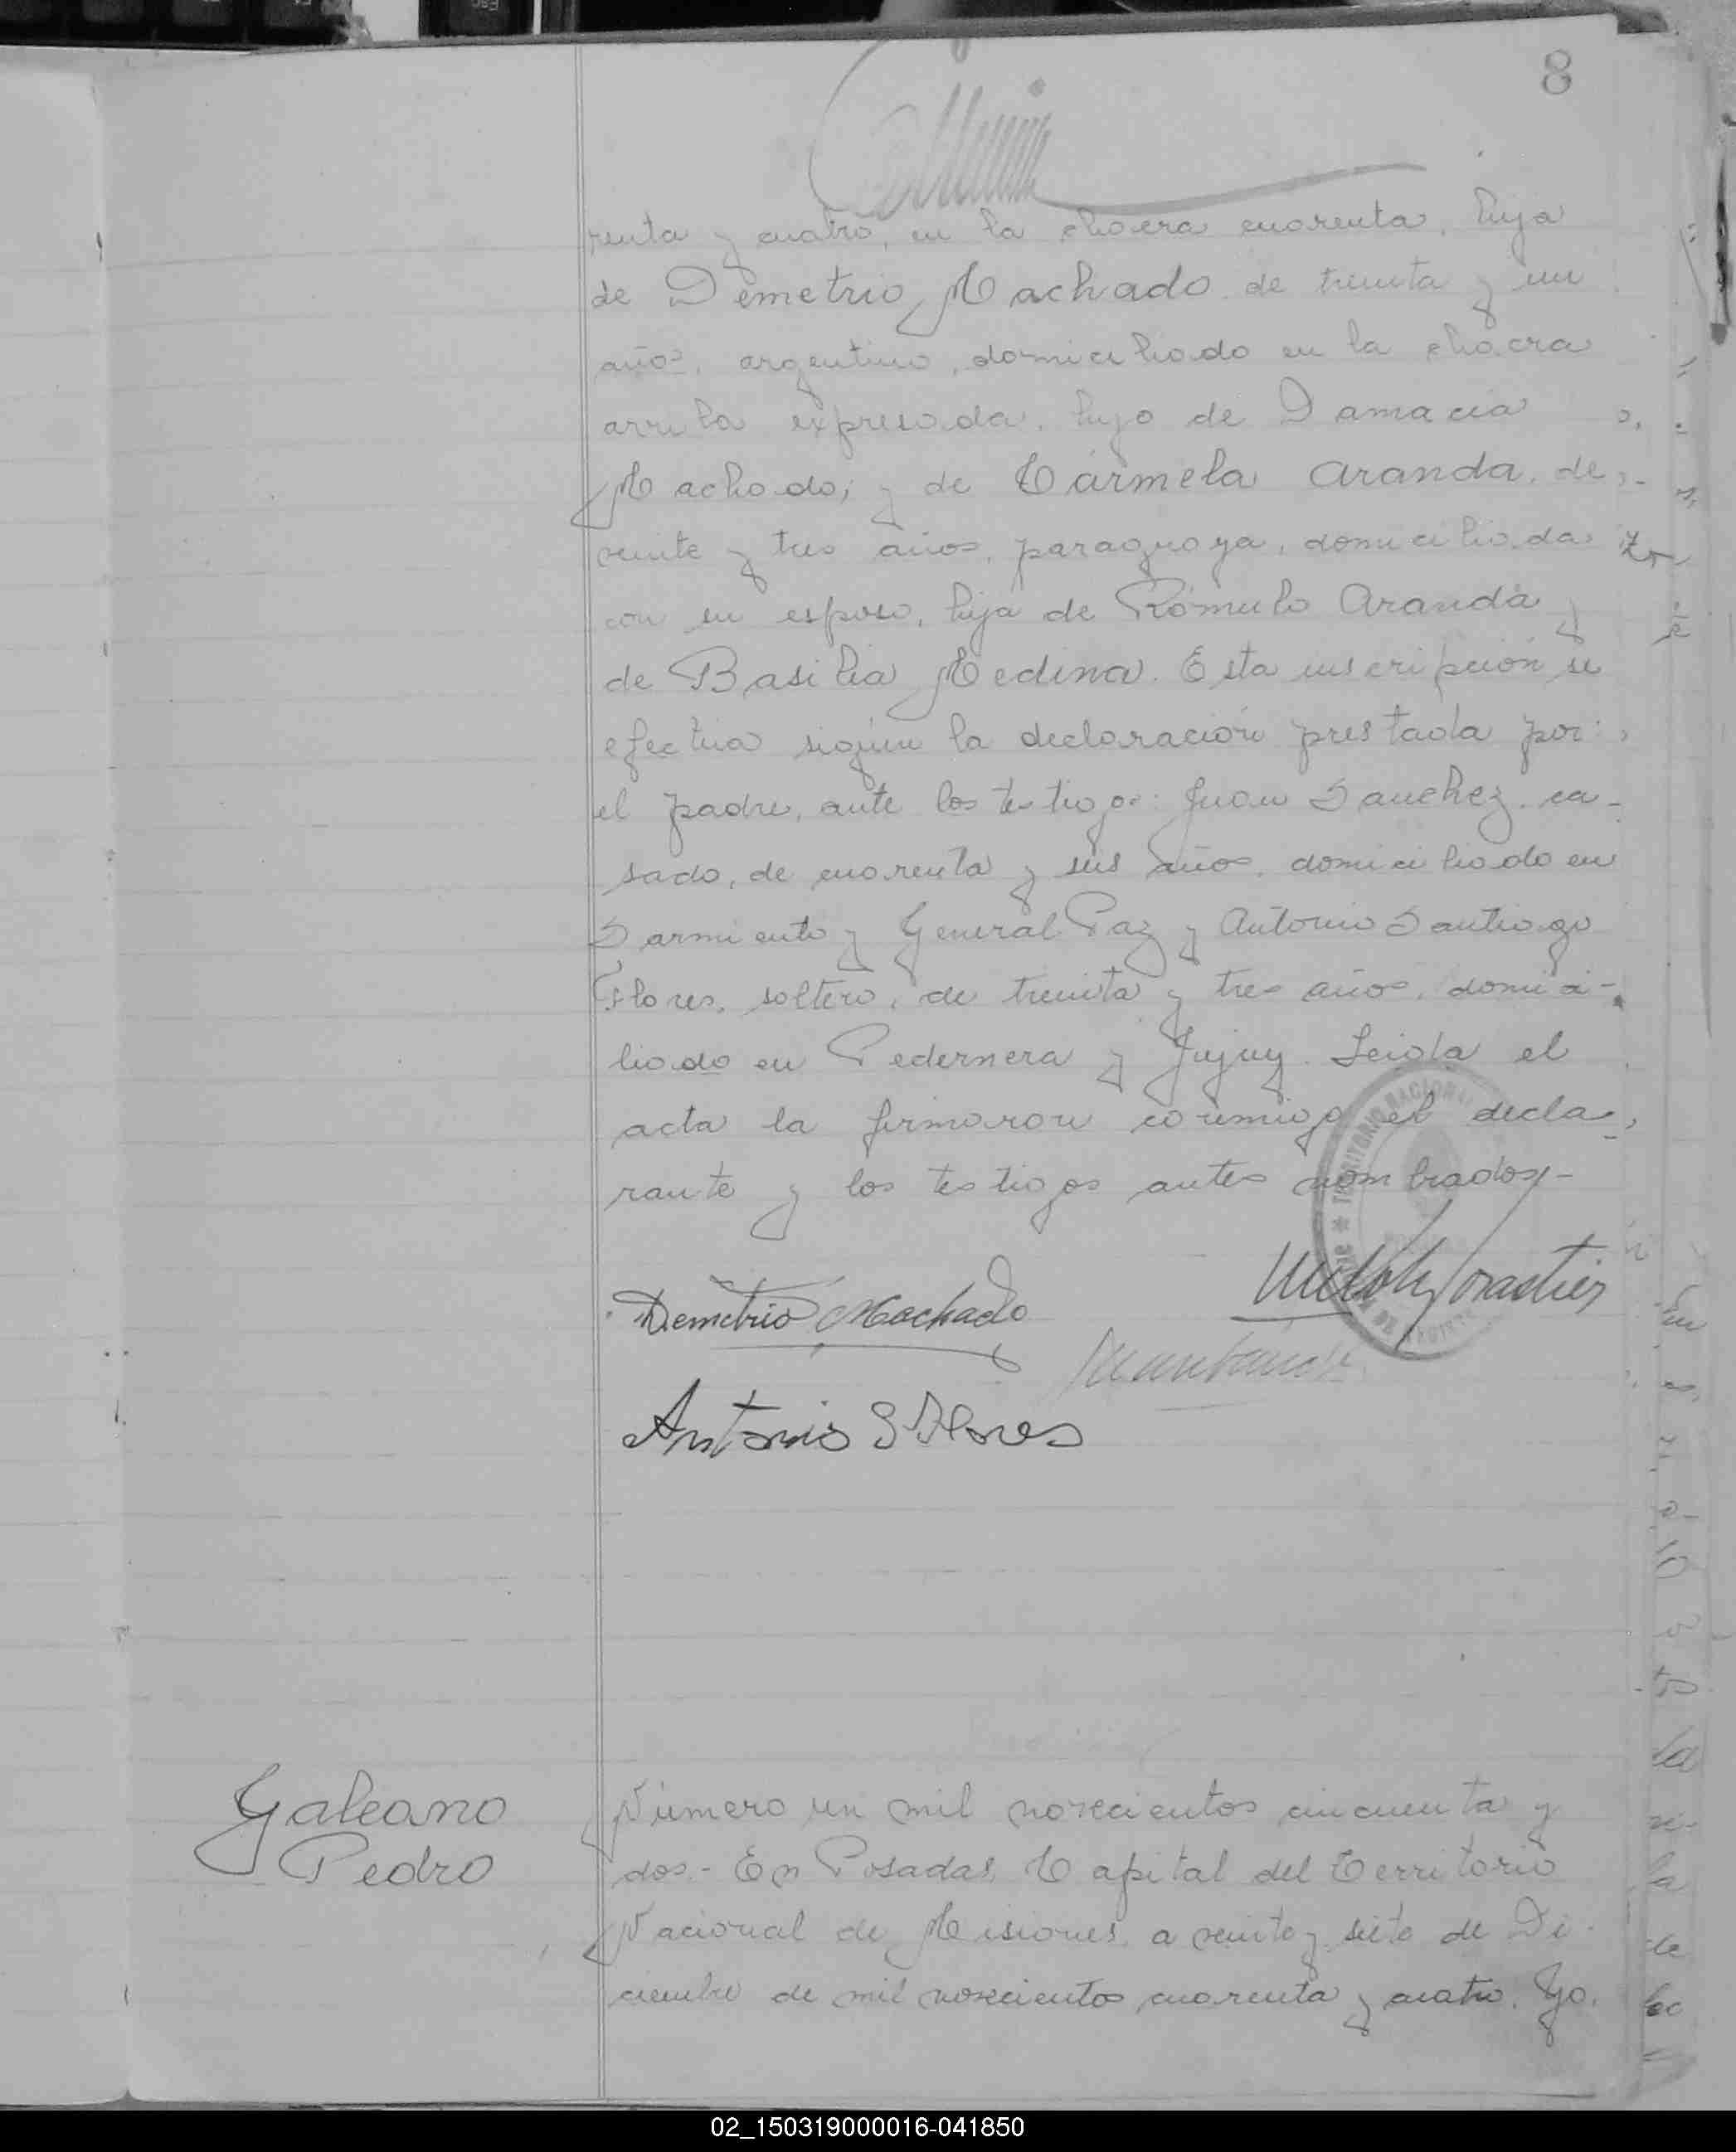 8
renta y cuatro, en la chacra cuarenta, hija
de Demetrio Machado de treinta y un
años, argentino, domiciliado en la chacra
arriba expresada, hijo de Damacia
Machado; y de Cármela Aranda, de
veinte y tres años, paraguaya, domiciliada
con su esposo, hija de Rómulo Aranda y
de Basilia Medina. Esta inscripción se
efectúa según la declaración prestada por
el padre, ante los testigos: Juan Sanchez, ca-
sado, de cuarenta y seis años, domiciliado en
Sarmiento y General Paz y Antonio Santiago
Flores, soltero, de treinta y tres años, domici-
liado en Pedernera y Jujuy. Leida el
acta la firmaron conmigo el decla-
rante y los testigos antes nombrados.-
Demetrio Machado
Antonio S Flores
Galeano
Pedro
Número un mil novecientos cincuenta y
dos.- En Posadas, Capital del Territorio
Nacional de Misiones, a veinte y siete de Di
ciembre de mil novecientos cuarenta y cuatro. Yo,
02_150319000016-041850